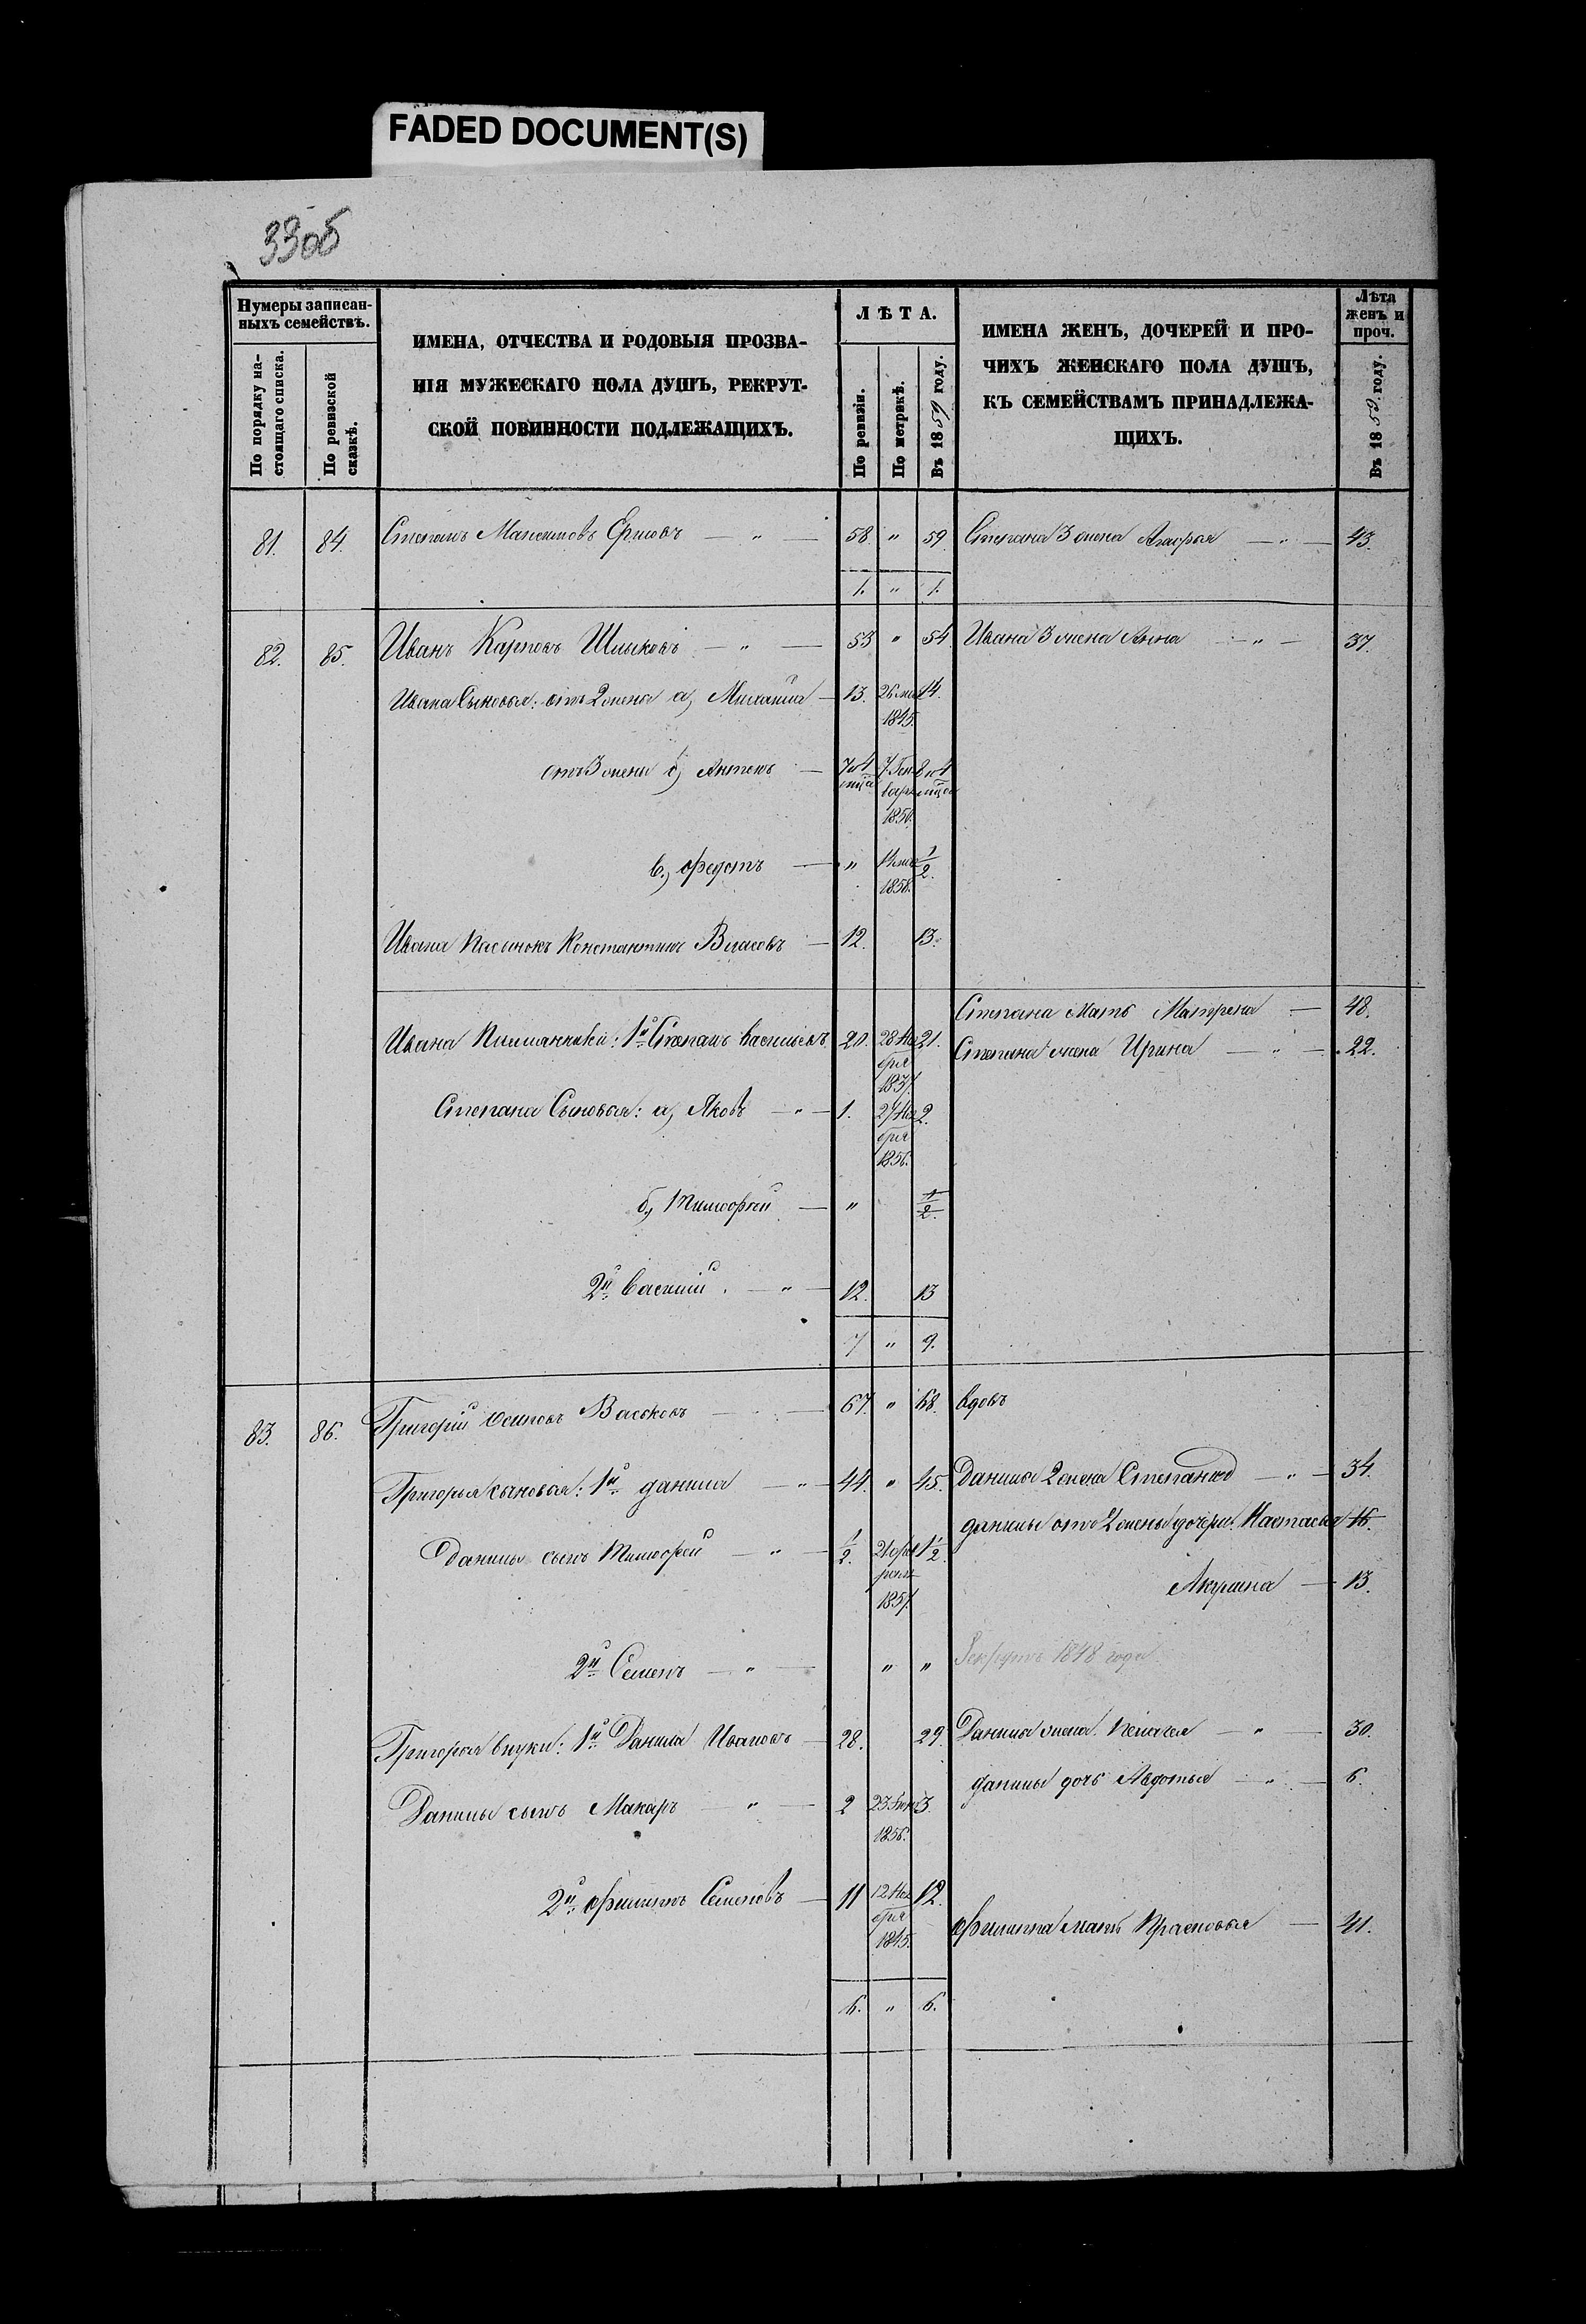 FADED DOCUMENT(S)
33об
Нумеры записан-
ныхъ семействъ.
По порядку на-
стоящаго списка.
По ревизской
сказкѣ.
ИМЕНА, ОТЧЕСТВА И РОДОВЫЯ ПРОЗВА-
НІЯ МУЖЕСКАГО ПОЛА ДУШЪ, РЕКРУТ-
СКОЙ ПОВИННОСТИ ПОДЛЕЖАЩИХЪ.
ЛѢТА.
По ревизіи.
По метрикѣ.
Въ 1859 году.
ИМЕНА ЖЕНЪ, ДОЧЕРЕЙ И ПРО-
ЧИХЪ ЖЕНСКАГО ПОЛА ДУШЪ,
КЪ СЕМЕЙСТВАМЪ ПРИНАДЛЕЖА-
ЩИХЪ.
Лѣта
женъ и
проч.
Въ 1859 году.
81. 84. Степанъ Максимовъ Ершовъ — " — 58. " 59. Степана 3 жена — " — 43.
1. " 1.
82. 85. Иванъ Карповъ Шлыковъ — " — 53 " 54. Ивана 3 жена Анна — " — 37.
Ивана Сыновья: отъ 2 жены а, Михайла — 13. 26 14.
1845.
отъ 3 жены б, Антонъ — 7 и 4 7 Ген- 8 и 4
мѣся варя мѣсяц
1850.
в, Федотъ — " 1/2
1858.
Ивана Пасынокъ Константинъ Власовъ — 12. 13.
Степана Мать Матрена — 48.
Ивана Племянники: 1й Степанъ Васильевъ 20. 28 Ноя 21. Степана жена Ирина — " — 22.
бря
1837.
Степана Сыновья: а, Яковъ — " — 1. 27 Ноя 2.
бря
1856.
б, Тимофей — " 1/2.
2й Василий. — " — 12. 13
7 " 9.
83. 86. Григорій Осиповъ Васьковъ — 67. " 68. вдовъ
Григорья сыновья: 1й данила — " — 44. " 45. Данилы 2 жена Степанида — " — 34.
данилы отъ 2 жены дочери: Настасья 16.
Данилы сынъ Тимофей — " — 1/2. 21 фев 1 1/2.
раля
1857.
Акулина — 13.
2й Семенъ — " — " " Рекрутъ 1848 года
Григорья внуки: 1й Данила Ивановъ — 28. 29. Данилы жена Пелагея — " — 30.
данилы дочь Авдотья — " — 6.
Данилы сынъ Макаръ — " — 2 23 3.
1856.
2й Филиппъ Семеновъ — 11 12 Ноя 12.
бря
1845.
Филиппа мать Прасковья — 41.
6. " 6.